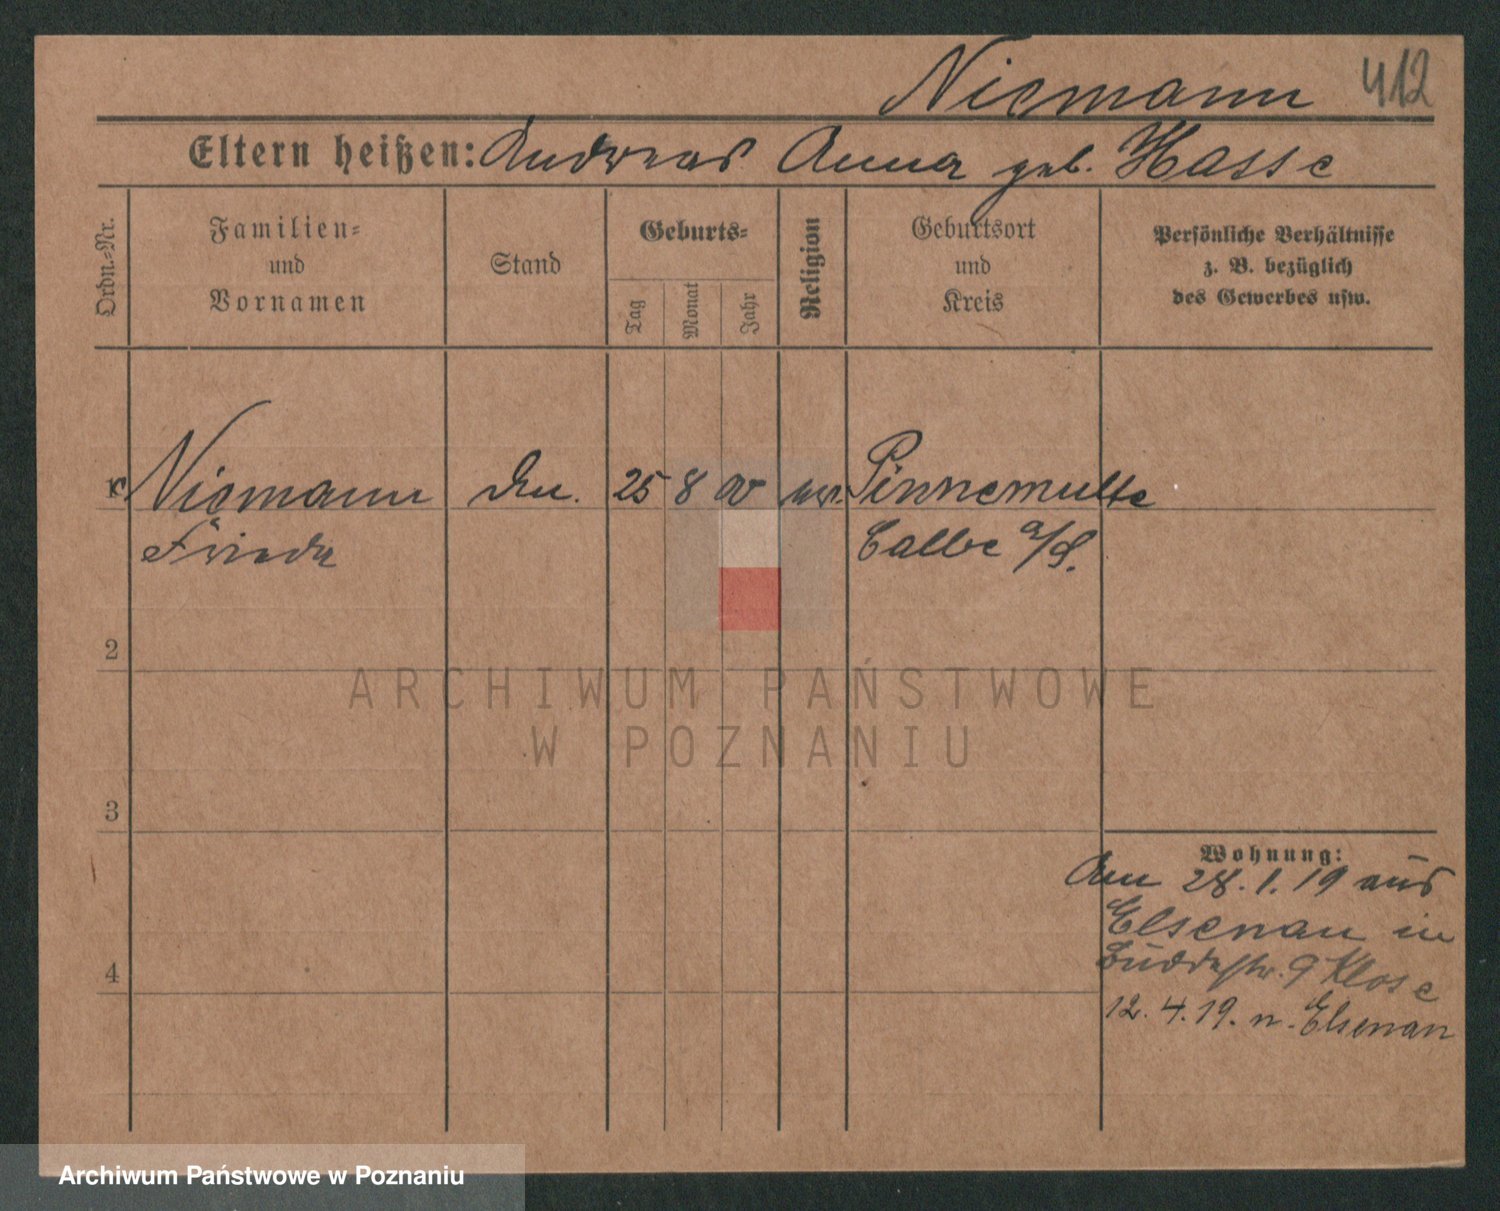 Niemann 412
Eltern heißen: Andreas Anna geb. Hasse
Ordn.-Nr.
Familien-
und
Vornamen
Stand
Geburts-
Tag
Monat
Jahr
Religion
Geburtsort
und
Kreis
Persönliche Verhältnisse
z. B. bezüglich
des Gewerbes usw.
Niemann 25 8 00 Pinnemulte
Frieda Calbe a/S.
2
ARCHIWUM PAŃSTWOWE
W POZNANIU
3
Wohnung:
Am 28.1.19 aus
Elsenau in
9 Klose
4
12.4.19. n. Elsenau
Archiwum Państwowe w Poznaniu